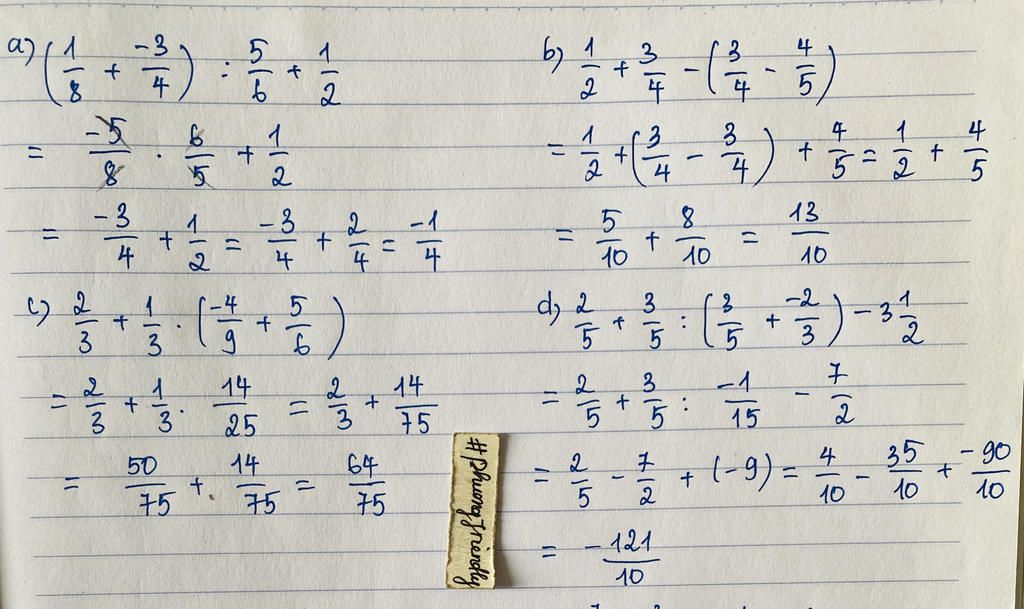 a) (1/8 + -3/4) : 5/6 + 1/2
= -5/8 . 6/5 + 1/2
= -3/4 + 1/2 = -3/4 + 2/4 = -1/4
b) 1/2 + 3/4 - (3/4 - 4/5)
= 1/2 + (3/4 - 3/4) + 4/5 = 1/2 + 4/5
= 5/10 + 8/10 = 13/10
c) 2/3 + 1/3 . (-4/9 + 5/6)
= 2/3 + 1/3 . 14/25 = 2/3 + 14/75
= 50/75 + 14/75 = 64/75
d) 2/5 + 3/5 : (3/5 + -2/3) - 3 1/2
= 2/5 + 3/5 : -1/15 - 7/2
= 2/5 - 7/2 + (-9) = 4/10 - 35/10 + -90/10
= -121/10
#phuongfriendly